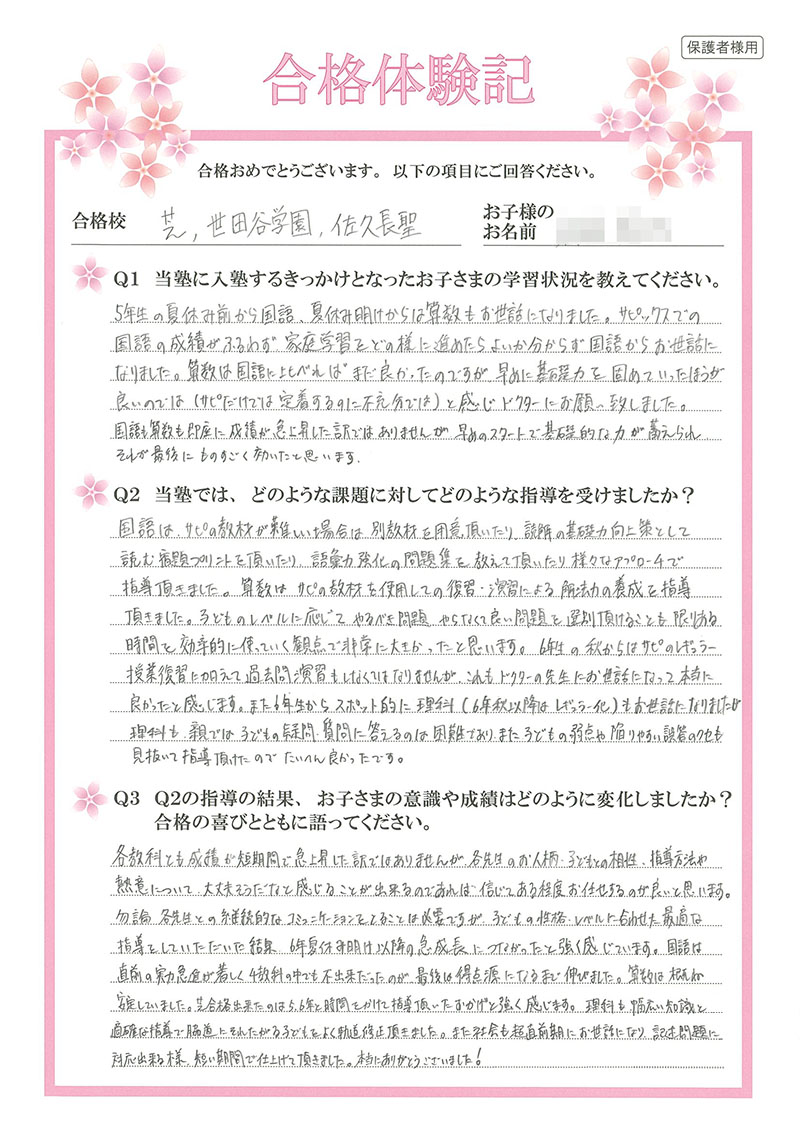 保護者様用
合格体験記
合格おめでとうございます。以下の項目にご回答ください。
合格校 芝, 世田谷学園, 佐久長聖
お子様の
お名前
Q1 当塾に入塾するきっかけとなったお子さまの学習状況を教えてください。
5年生の夏休み前から国語、夏休み明けからは算数もお世話になりました。サピックスでの
国語の成績がふるわず 家庭学習をどの様に進めたらよいか分からず国語からお世話に
なりました。算数は国語に比べればまだ良かったのですが 早めに基礎力を固めていったほうが
良いのでは(サピだけでは定着するのに不充分では)と感じドクターにお願い致しました。
国語も算数も即座に成績が急上昇した訳ではありませんが 早めのスタートで基礎的な力が蓄えられ
それが最後にものすごく効いたと思います.
Q2 当塾では、どのような課題に対してどのような指導を受けましたか?
国語は、サピの教材が難しい場合は別教材を用意頂いたり、読解の基礎力向上策として
読む宿題プリントを頂いたり 語彙力強化の問題集を教えて頂いたり様々なアプローチで
指導頂きました。算数はサピの教材を使用しての復習・演習による解法力の養成を指導
頂きました。子どものレベルに応じてやるべき問題 やらなくて良い問題を選別頂けることも 限りある
時間を効率的に使っていく観点で非常に大きかったと思います。6年生の秋からはサピのレギュラー
授業復習に加えて過去問演習もしなくてはなりませんが、これもドクターの先生にお世話になって本当に
良かったと感じます。また6年生からスポット的に理科(6年秋以降はレギュラー化)もお世話になりましたが
理科も、親では子どもの疑問・質問に答えるのは困難であり、また子どもの弱点や陥りやすい誤答のクセも
見抜いて指導頂けたのでたいへん良かったです。
Q3 Q2の指導の結果、お子さまの意識や成績はどのように変化しましたか?
合格の喜びとともに語ってください。
各教科とも成績が短期間で急上昇した訳ではありませんが、各先生のお人柄・子どもとの相性、指導方法や
熱意について、大丈夫そうだなと感じることが出来るのであれば 信じてある程度お任せするのが良いと思います。
勿論 各先生との継続的なコミュニケーションをとることは必要ですが、子どもの性格・レベルに合わせた最適な
指導をしていただいた結果 6年夏休み明け以降の急成長につながったと強く感じています。国語は
直前の実力急進が著しく 4教科の中でも不出来だったのが 最後は得点源になるまで伸びました。算数は概ね
安定していました。芝合格出来たのは5,6年と時間をかけて指導頂いたおかげと強く感じます。理科も幅広い知識と
適確な指導で脇道にそれたがる子どもをよく軌道修正頂きました。また社会も超直前期にお世話になり 記述問題に
対応出来る様、短い期間で仕上げて頂きました。本当にありがとうございました!